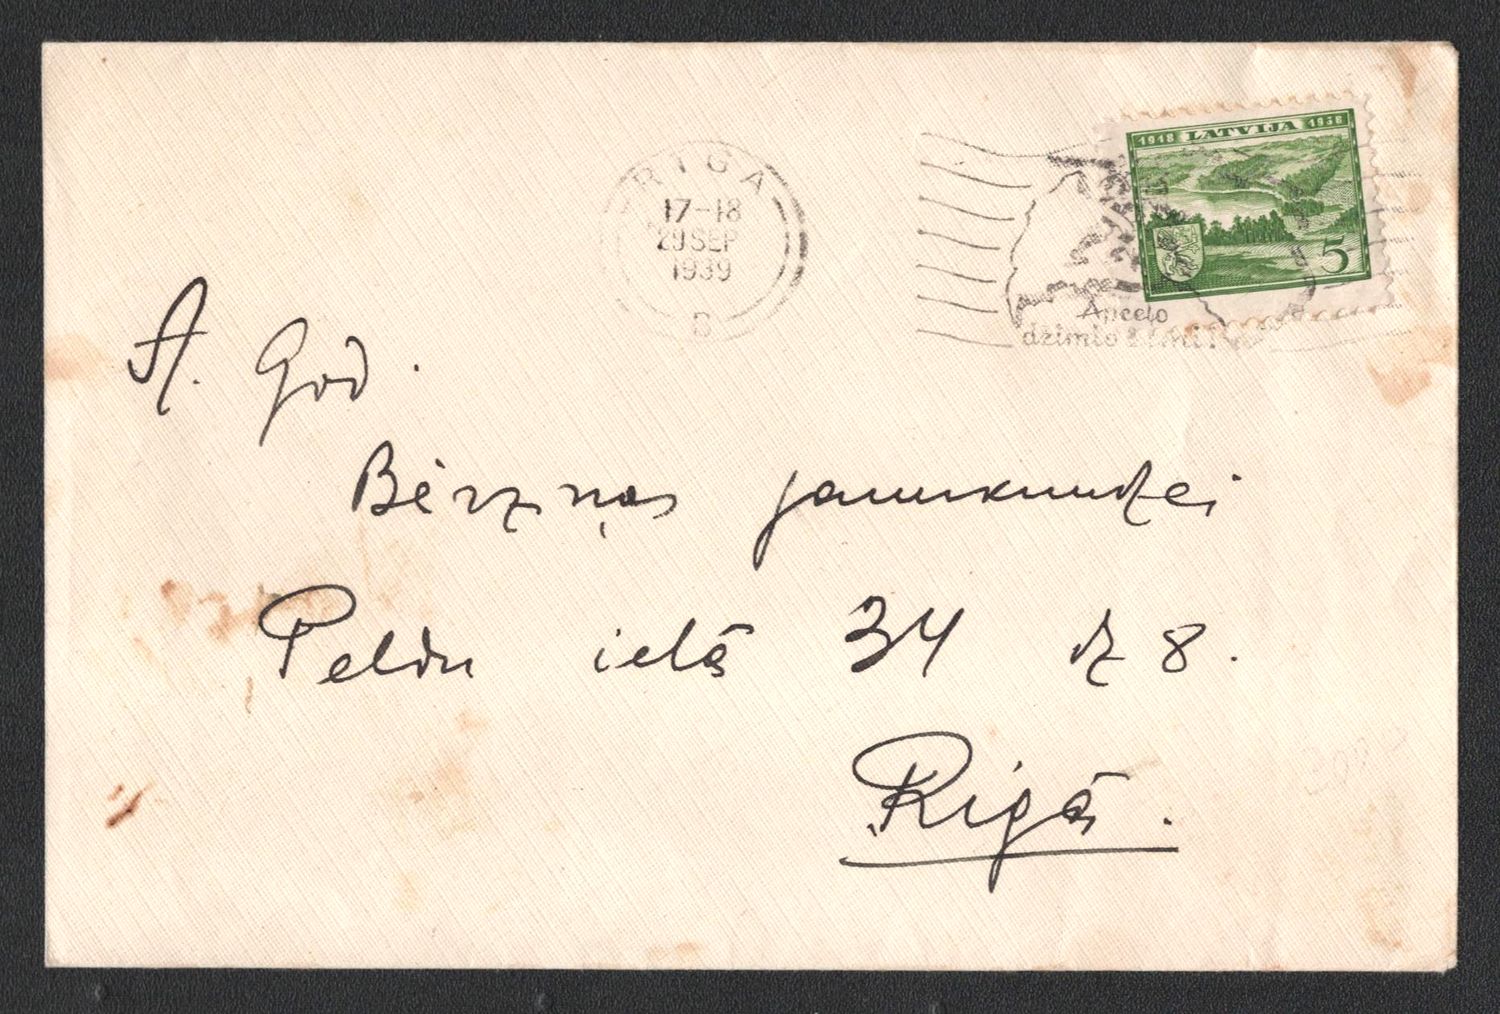 RIGA
17-18
29 SEP
1939
B
1918 LATVIJA 1938
5
Apceļo
dzimto zemi!
A. God.
Bērziņas jaunkundzei
Peldu ielā 34 dz 8.
Rīgā.